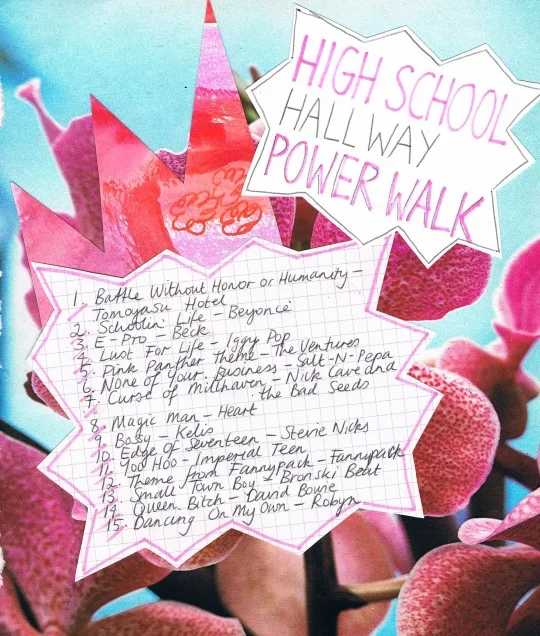 HIGH SCHOOL
HALLWAY
POWER WALK
1. Battle Without Honor or Humanity –
Tomoyasu Hotel
2. Schoolin' Life – Beyonce
3. E-Pro – Beck
4. Lust For Life – Iggy Pop
5. Pink Panther Theme – The Ventures
6. None of Your Business – Salt-N-Pepa
7. Curse of Millhaven – Nick Cave and
the Bad Seeds
8. Magic Man – Heart
9. Bossy – Kelis
10. Edge of Seventeen – Stevie Nicks
11. Yoo Hoo – Imperial Teen
12. Theme from Fannypack – Fannypack
13. Small Town Boy – Bronski Beat
14. Queen Bitch – David Bowie
15. Dancing On My Own – Robyn